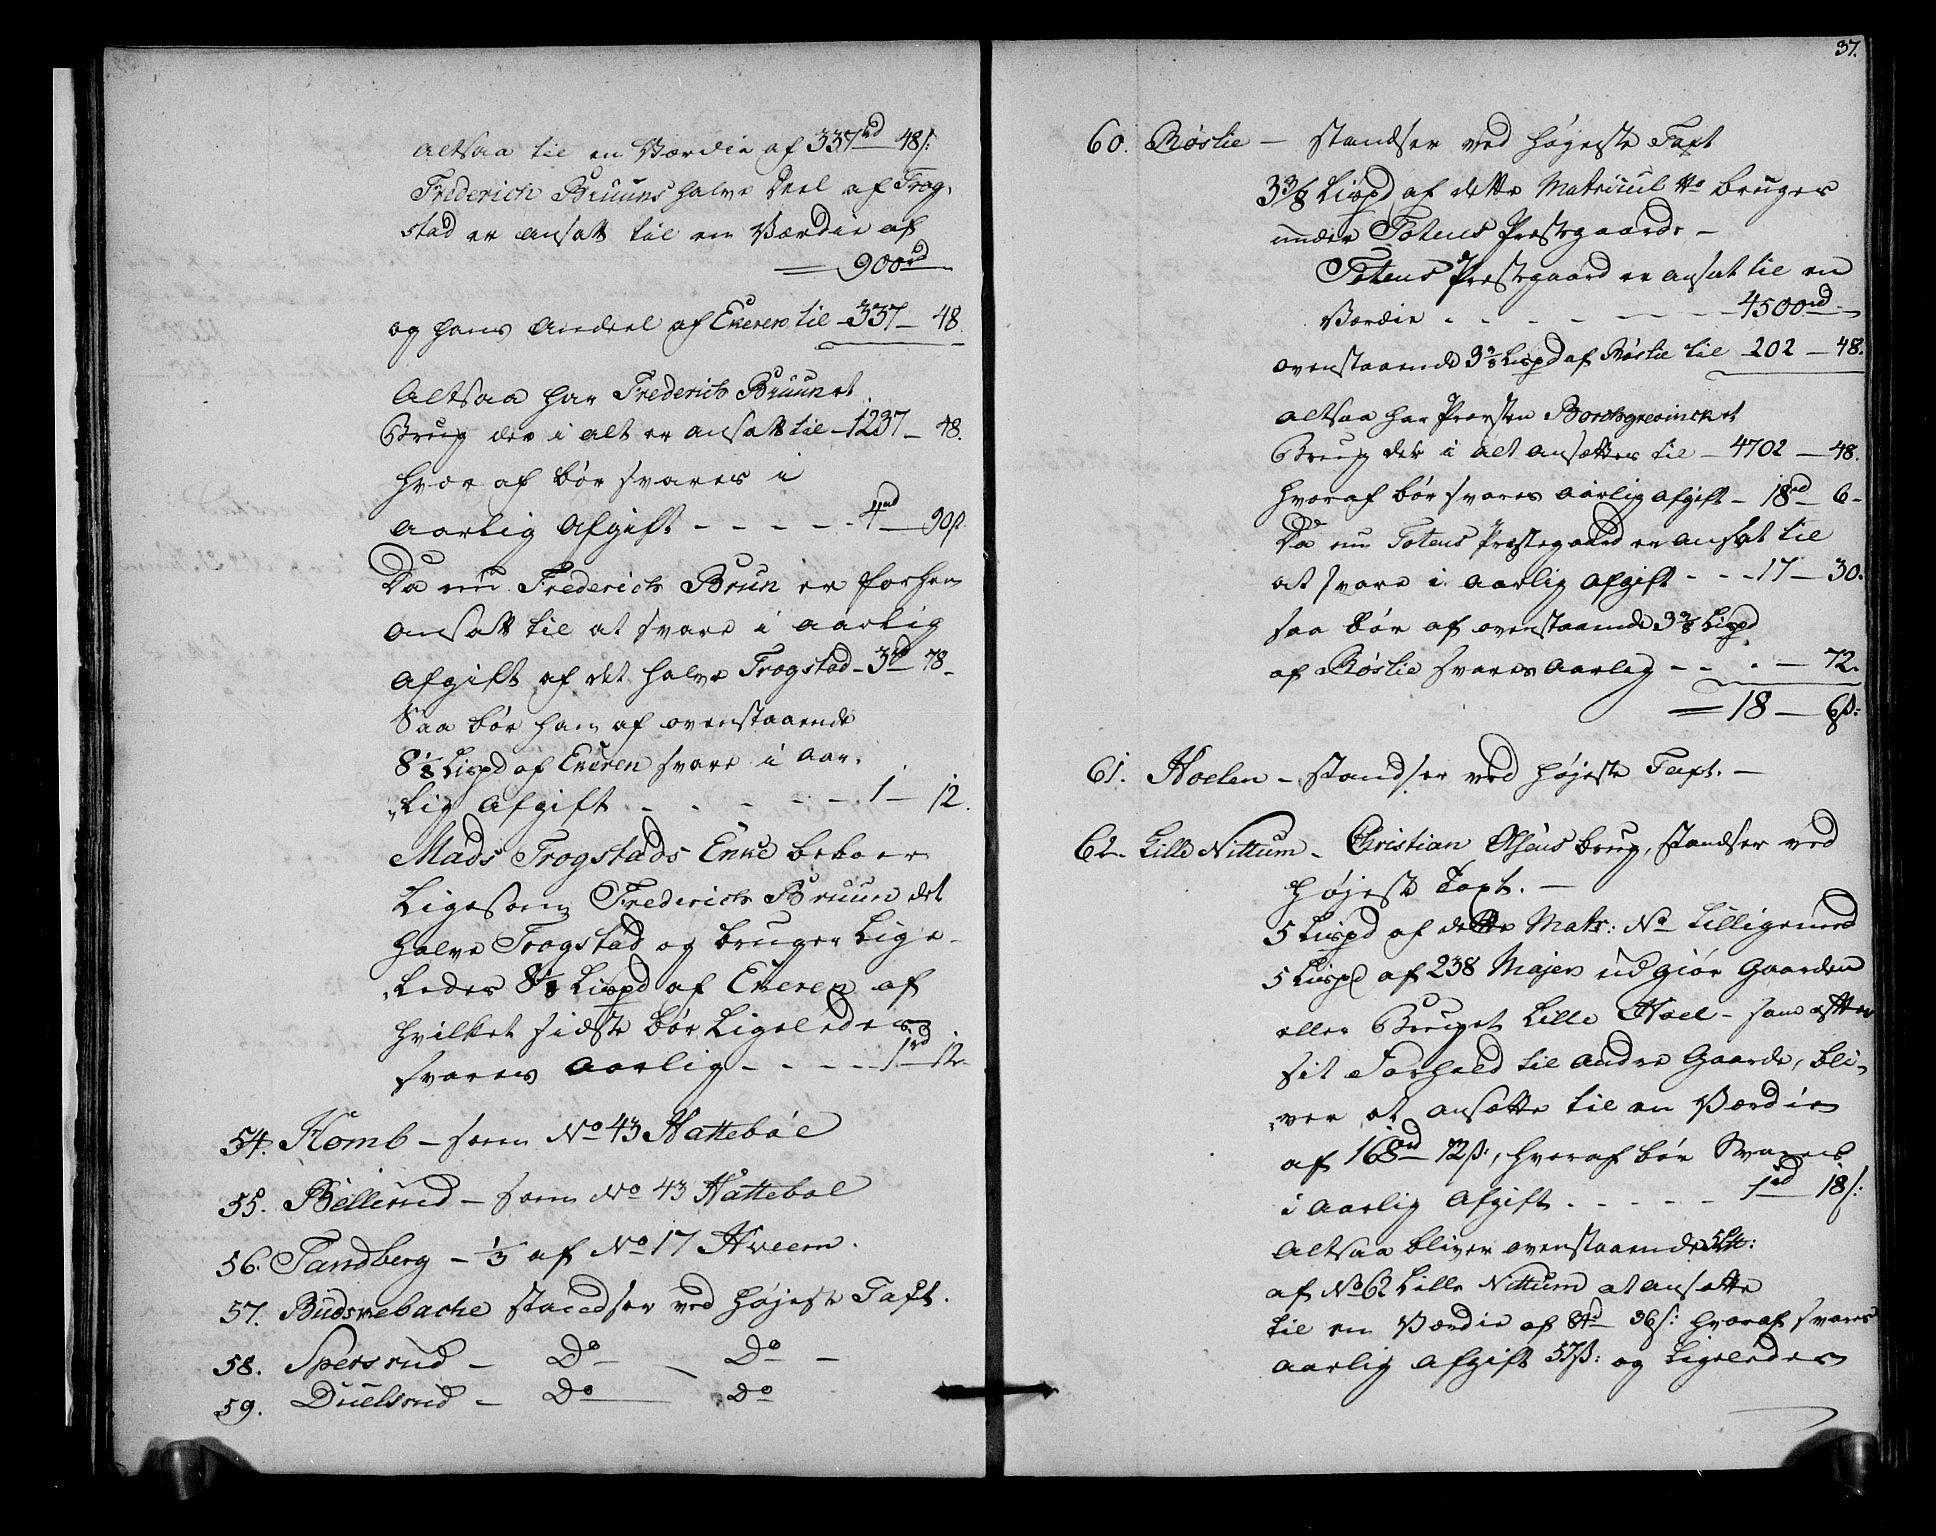 altsaa til en Værdie af 337rd 48s:
Friderich Bruuns halve Deel af Trog,
stad er ansatt til en Værdie af
900rd
og hans Andeel af Ekeren til - 337 - 48.
Altsaa har Frederich Bruun et
Brug der i alt er ansatt til - 1237 - 48.
hvor af bør svares i
aarlig Afgift - - - - - 4rd - 90s.
Da nu Frederich Brun er forhen
ansatt til at svare i aarlig
Afgift af det halve Trogstad - 3rd 78 -
Saa bør han af ovenstaaende
8 1/8 Lispd af Ekeren svare i aar,
„lig Afgift - - - - - 1 - 12.
Mads Trogstads Enke beboer
Ligesom Frederich Bruun det
halve Trogstad og bruger Lige-
„ledes 8 1/8 Lispd af Ekeren af
hvilket sidste bør Ligeledes
svares aarlig - - - - 1rd - 12 -
54. Homb - som No 43 Hattebøe
55. Bellerud - som No 43 Hattebøe
56. Sandberg - 1/3 af No 17 Hveem.
57. Budsnebache standser ved højeste Taxt.
58. Spersrud - Do - Do -
59. Duelsrud - Do - Do
37.
60. Røslie - standser ved højeste Taxt
3 3/8 Lispd af dette Matricul No bruges
under Totens Præstgaard -
Totens Præstgaard er ansat til en
Værdie - - - - - - - 4500rd -
ovenstaaende 3 3/8 Lispd af Røslie til - 202 - 48.
altsaa har Provsten Borchgrevinck et
Brug der i alt ansættes til - 4702 - 48.
hvoraf bør svares aarlig Afgift - 18rd - 6 -
Da nu Totens Præstegaard er ansat til
at svare i aarlig Afgift - - - 17 - 30.
saa bør af ovenstaaende 3 3/8 Lispd
af Røslie svares aarlig - - - - 72.
18 - 6s:
61. Hoelen - standser ved højeste Taxt. -
62. Lille Nittum - Christian Olsens brug, standser ved
højeste Taxt. -
5 Lispd af dette Matr: No Tilligemed
5 Lispd af 238 Majen udgiør Gaarden
eller Bruget Lille Hoel - som efter
sit Forhold til andre Gaarde, bli-
„ver at ansætte til en Værdie
af 168rd 72s:, hvoraf bør Svares
i aarlig Afgift - - - - - 1rd 18s:
Altsaa bliver ovenstaaende 5 Lp:
af No 62 Lille Nittum at ansætte
til en Værdie af 84rd 36s: hvoraf svares
aarlig Afgift 57s: og Ligeledes